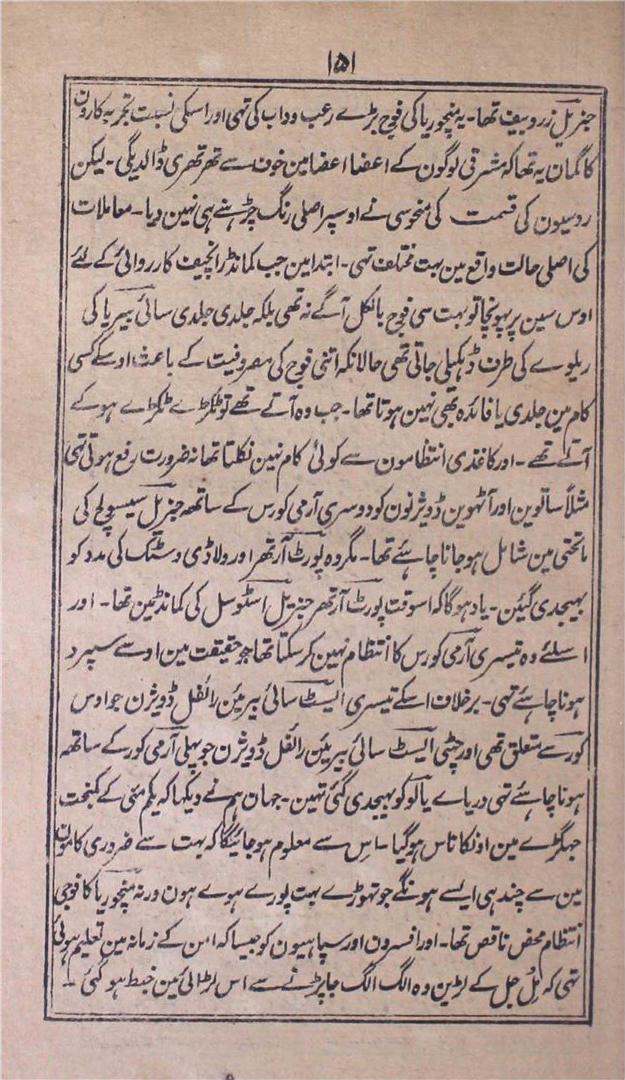 ۱۵۱
جنریل زروبیف تھا۔ یہ منچوریا کی فوج بڑے رعب وداب کی تہی اور اسکی نسبت تجربہ کارون
کا گمان یہ تھا کہ مشرقی لوگون کے اعضا اعضا مین خوف سے تھر تھری ڈالدیگی۔ لیکن
روسیون کی قسمت کی منحوسی نے اوسپر اصلی رنگ چڑہنے ہی نہین دیا۔ معاملات
کی اصلی حالت واقع مین بہت مختلف تہی۔ ابتدا مین جب کمانڈر انچیف کارروائی کے لئے
اوس سین پر پہونچا تو بہت سی فوج بالکل آگے نہ تھی بلکہ جلدی جلدی سائی بیریا کی
ریلوے کی طرف ڈہکیلی جاتی تھی حالانکہ اتنی فوج کی مصروفیت کے باعث اوسکے کسی
کام مین جلدی یا فائدہ بھی نہین ہوتا تھا۔ جب وہ آتے تھے تو ٹکڑے ٹکڑے ہو کے
آتے تھے۔ اور کاغذی انتظامون سے کوئی کام نہین نکلتا تھا نہ ضرورت رفع ہوتی تہی
مثلاً ساتوین اور آٹہوین ڈویژنون کو دوسری آرمی کورس کے ساتھ جنریل سیسولچ کی
ماتحتی مین شامل ہو جانا چاہئے تھا۔ مگر وہ پورٹ آرتھر اور ولاڈی وسٹک کی مدد کو
بھیجدی گئین۔ یاد ہوگا کہ اسوقت پورٹ آرتھر جنریل اسٹوسل کی کمانڈ مین تھا۔ اور
اسلئے وہ تیسری آرمی کورس کا انتظام نہین کر سکتا تھا جو حقیقت مین اوسے سپرد
ہونا چاہئے تہی۔ برخلاف اسکے تیسری ایسٹ سائی بیرئین رائفل ڈویژن جو اوس
کور سے متعلق تھی اور چٹی ایسٹ سائی بیرئین رائفل ڈویژن جو پہلی آرمی کور کے ساتھ
ہونا چاہئے تہی دریاے یالو کو بھیجدی گئی تہین۔ جہان ہم نے دیکہا کہ یکم مئی کے کمبخت
جہگڑے مین اونکا ناس ہوگیا۔ اس سے معلوم ہو جائیگا کہ بہت سے ضروری کامون
مین سے چند ہی ایسے ہونگے جو تہوڑے بہت پورے ہوے ہون ورنہ منچوریا کا فوجی
انتظام محض ناقص تھا۔ اور افسرون اور سپاہیون کو جیسا کہ امن کے زمانہ مین تعلیم ہوئی
تہی کہ مل جل کے لڑین وہ الگ الگ جا پڑنے سے اس لڑائی مین خبط ہو گئی۔